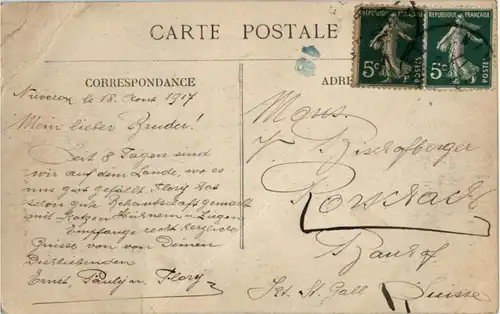 CARTE POSTALE
REPUBLIQUE FRANÇAISE
5c
POSTES
REPUBLIQUE FRANÇAISE
5c
POSTES
CORRESPONDANCE
ADRE
le 18. Aout 1917
Mein lieber Bruder!
Seit 8 Tagen sind
wir auf dem Lande, wo es
uns gut gefällt. Flory hat
schon gute Bekanntschaft gemacht
mit Katzen Hühnern u. Ziegen
Empfange recht herzliche
Grüsse von Deinen
Dichliebenden
Ernst, Pauly u. Flory
Mons.
Bischofberger
Rorschach
Kt. St. Gall
Suisse